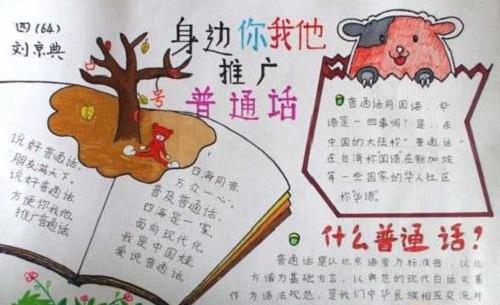 四(64)
刘京典
身边你我他
推广
普通话
说好普通话,
朋友满天下,
说好普通话
方便你我他
推广普通话
海同音
万众一心,
普及普通话,
四海是一家,
面向现代化,
我是中国娃
爱说普通话
普通话同国语、华
语是一回事吗?是,在
中国的大陆称"普通话"
在台湾称国语在新加坡
等一些国家的华人社区
称华语
什么普通话?
普通话是以北京语音为标准音,以北
方话为基础方言,以典范的现代白话文著
作为语法规范,是我们中华民族相互交流